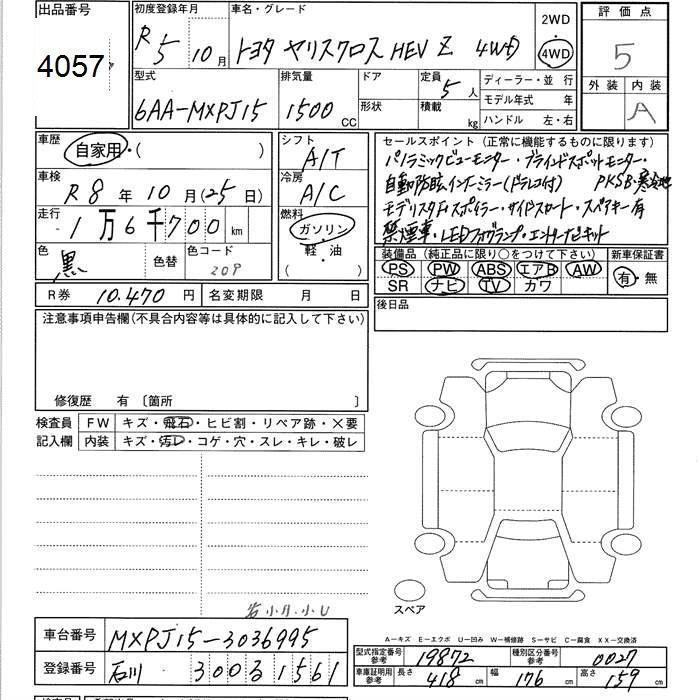 出品番号
4057
初度登録年月
R 5 10月
車名・グレード
トヨタ ヤリスクロス HEV Z 4WD
2WD
・
4WD
評価点
5
外装 内装
A
型式
6AA-MXPJ15
排気量
1500 CC
ドア
形状
定員 5人
積載 kg
ディーラー・並 行
モデル年式 年
ハンドル 左・右
車歴
自家用・( )
車検
R 8 年 10 月(25 日)
走行
1万6千700 km
色
黒 色替
色コード
209
シフト
A/T
冷房
A/C
燃料
ガソリン
・軽・油
( )
セールスポイント (正常に機能するものに限ります)
パノラミックビューモニター・ブラインドスポットモニター・
自動防眩インナーミラー(ドラレコ付) PKSB・寒冷地
モデリスタFスポイラー・サイドスカート・スペアキー有
禁煙車・LEDフォグランプ・エントリーナビキット
装備品 (純正品に限り○をつけて下さい)
PS PW ABS エアB AW
SR ナビ TV カワ
新車保証書
有・無
R券 10.470 円
名変期限 月 日
後日品
注意事項申告欄(不具合内容等は具体的に記入して下さい)
修復歴 有 〔箇所 〕
検査員
記入欄
FW キズ・飛石・ヒビ割・リペア跡・×要
内装 キズ・汚レ・コゲ・穴・スレ・キレ・破レ
スペア
A－キズ E－エクボ U－凹み W－補修跡 S－サビ C－腐食 XX－交換済
車台番号 MXPJ15-3036995
登録番号 石川 300 る 1561
型式指定番号
参考 19872
種別区分番号
参考 0027
車庫証明用
参考 長さ 418 cm 幅 176 cm 高さ 159 cm